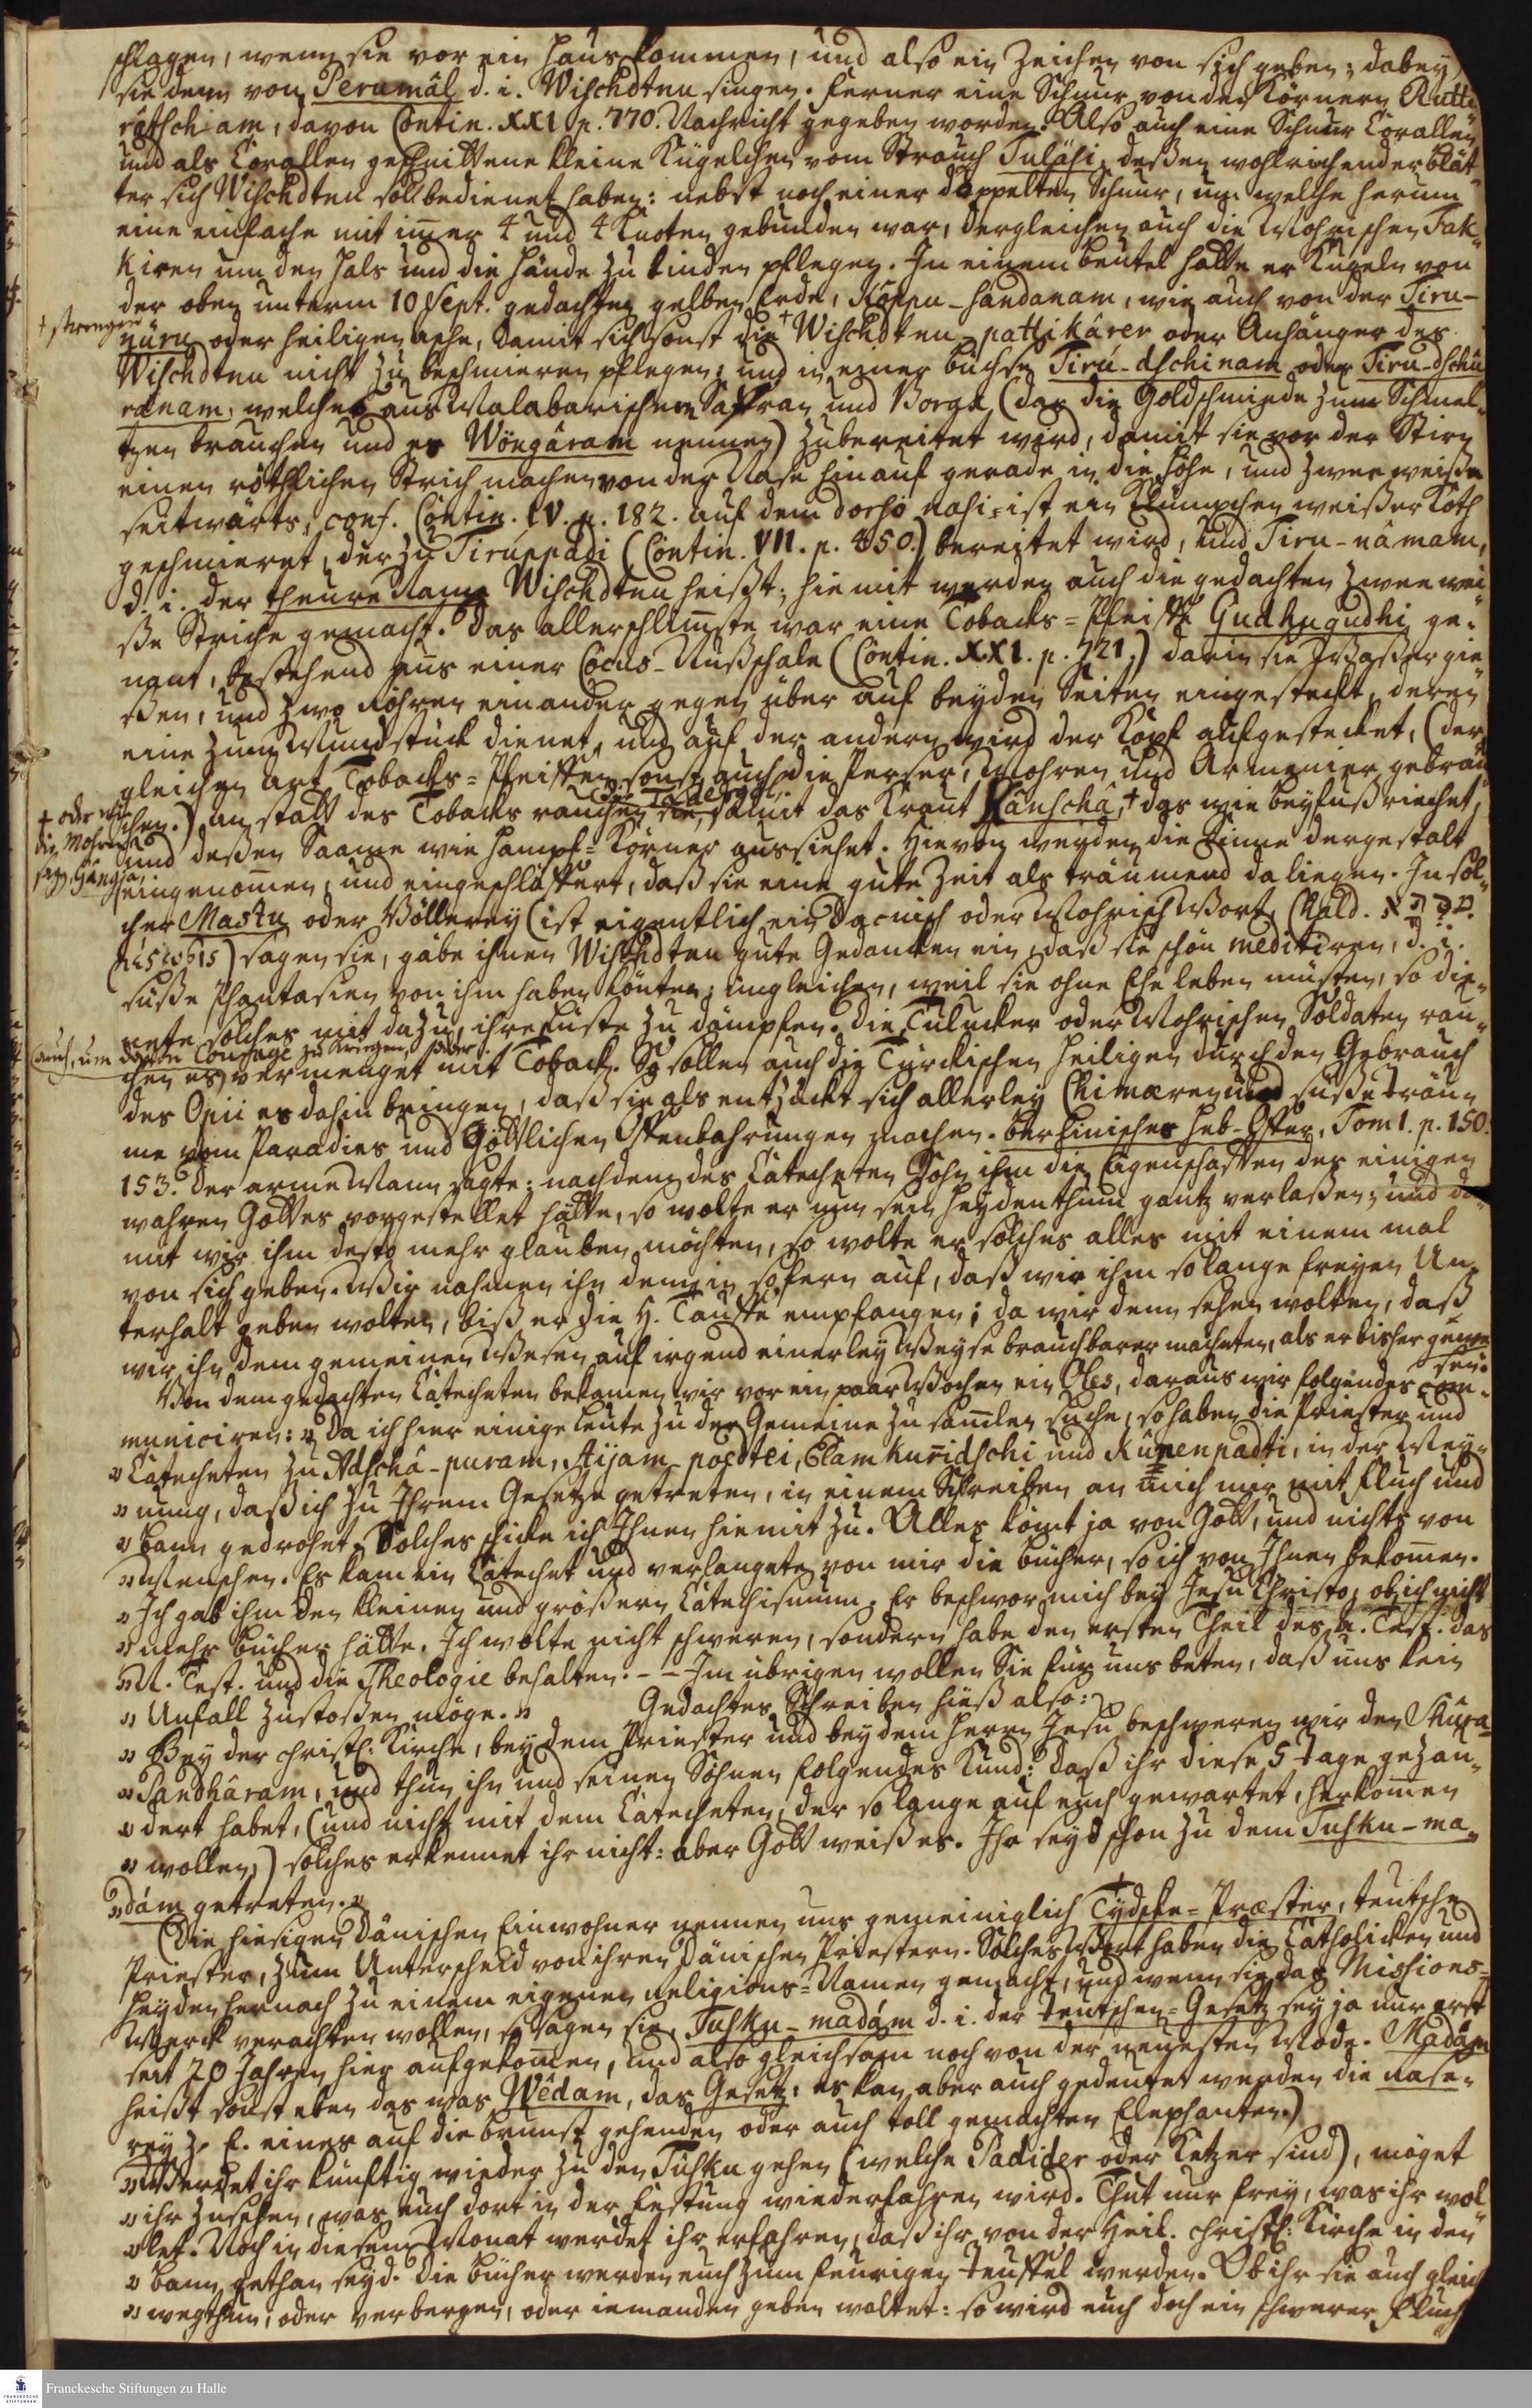 schlagen, wenn sie vor ein Haus kommen, und also ein Zeichen von sich geben; dabey
sie denn von Perumâl d. i. Wischdtnu singen. Ferner eine Schnur von den Körnern Rutti-
rätscham, davon Contin. XXI p. 770. Nachricht gegeben worden. Also auch eine Schnur Corallen,
und als Corallen geschnittene kleine Kügelchen vom Strauch Tuläsi, deßen wohlriechender Blät-
ter sich Wischdtnu soll bedienet haben: nebst noch einer doppelten Schnur, um welche herum
eine einfache mit im̅er 4 und 4 Knoten gebunden war, dergleichen auch die Mohrischen Fak-
kiren um den Hals und die Hände zu binden pflegen. In einem Beutel hatte er Kugeln von
der oben unterm 10 Sept. gedachten gelben Erde, Köppu-sandanam, wie auch von der Tiru-
+ strengen
nüru oder heiligen Asche, damit sich sonst die + Wischdtnu-pattikârer oder Anhänger des
Wischdtnu nicht zu beschmieren pflegen; und in einer Büchse Tirú-dschinam oder Tiru-dschû
ranam, welches aus Malabarischem Saffran und Borga (das die Goldschmiede zum Schmel-
tzen brauchen und es Wöngâram nennen) zubereitet wird, damit sie vor der Stirn
einen röthlichen Strich machen von der Nase hinauf gerade in die Höhe, und zwee weiße
seitwärts, conf. Contin. IV. p. 182. auf dem dorso nasi ist ein Klümpchen weißer Koth
geschmieret, der zu Tiruppadi (Contin. VII. p. 450.) bereitet wird, und Tiru-nâmam,
d. i. der theure Name Wischdtnu heißt; hiemit werden auch die gedachten zwee wei-
ße Striche gemacht. Das allerschlim̅ste war eine Tobacks-Pfeiffe Gudhugudhi ge-
nant, bestehend aus einer Cocus-Nußschale (Contin. XXI. p. 721,) darin sie Waßer gie-
ßen, und zwo Röhren einander gegen über auf beyden Seiten eingesteckt, deren
eine zum Mundstück dienet, und auf der andern wird der Kopf aufgestecket, (der
gleichen Art Tobacks-Pfeiffen sonst auch die Perser, Mohren und Armenier gebrau
+ oder wie
die Mohren
sagen Gangja
chen.) an statt des Tobacks rauchen sie damit das Kraut Kânschâ,+ das wie Beyfuß riechet,
und deßen Saame wie Hampf-Körner aussiehet. Hievon werden die Sinne dergestalt
eingenom̅en, und eingeschläffert, daß sie eine gute Zeit als träumend da liegen. In sol-
cher Mastu oder Völlerey (ist eigentlich ein Dacnisch oder Mohrisch Wort,
) sagen sie, gäbe ihnen Wischdtnu gute Gedancken ein, daß sie schön meditiren, d. i.
süße Phantasien von ihm haben könten; imgleichen, weil sie ohne Ehe leben müsten, so die-
nete solches mit dazu, ihre Lüste zu dämpfen. Die Tulucker oder Mohrischen Soldaten rau-
(auch, um davon Courage zu kriegen,
chen es) vermenget mit Toback. So sollen auch die Türckischen Heiligen durch den Gebrauch
des Opii es dahin bringen, daß sie als entzückt sich allerley Chimæren und süße Träu-
me vom Paradies und Göttlichen Offenbahrungen machen. Berlinisches Heb-Opfer, Tom 1. p. 150.
153. Der arme Mann sagte: nachdem des Catecheten Sohn ihm die Eigenschafften des einigen
wahren Gottes vorgestellet hätte, so wolte er nun sein Heydenthum gantz verlaßen; und da-
mit wir ihm desto mehr glauben möchten, so wolte er solches alles mit einem mal
von sich geben. Wir nahmen ihn denn in so fern auf, daß wir ihm so lange freyen Un-
terhalt geben wolten, biß er die H. Tauffe empfangen; da wir denn sehen wolten, daß
wir ihn dem gemeinen Wesen auf irgend einerley Weyse brauchbarer machten, als er bisher gewe
sen.
Von dem gedachten Catecheten bekamen wir vor ein paar Wochen ein Oles, daraus wir folgendes com-
municiren: „Da ich hier einige Leute zu der Gemeine zu sam̅len suche, so haben die Priester und
„Catecheten zu Adschâ-puram, Aijam-poedtei, Elamkuridschi und Kûnenpadti, in der Mey-
„nung, daß ich zu Ihrem Gesetze getreten, in einem Schreiben an mich mir mit Fluch und
„Bann gedrohet. Solches schicke ich Ihnen hiemit zu. Alles kom̅t ja von Gott, und nichts von
„Menschen. Es kam ein Catechet und verlangete von mir die Bücher, so ich von Ihnen bekom̅en.
„Ich gab ihm den kleinen und größern Catechismum. Er beschwor mich bey Jesu Christo, ob ich nicht
„mehr Bücher hätte. Ich wolte nicht schweren, sondern habe den ersten Theil des A. Test. das
„N. Test. und die Theologie behalten. - - Im übrigen wollen Sie für uns beten, daß uns kein
„Unfall zustoßen möge. „ Gedachtes Schreiben hieß also:
„Bey der christl: Kirche, bey dem Priester und bey dem Herrn Jesu beschweren wir den Sûra-
„Pandhâram, und thun ihm und seinen Söhnen folgendes Kund: daß ihr diese 5 Tage gezau-
„dert habet, (und nicht mit dem Catecheten, der so lange auf euch gewartet, herkom̅en
„wollen,) solches erkennet ihr nicht: aber Gott weiß es. Ihr seyd schon zu dem Tusku-ma-
„dám getreten. „
(Die hiesigen Dänischen Einwohner nennen uns gemeiniglich Tydske-Præster, teutsche
Priester, zum Unterscheid von ihren Dänischen Priestern. Solches Wort haben die Catholicken und
Heyden hernach zu einem eigenen Religions-Namen gemacht, und wenn sie das Missions-
Werck verachten wollen, so sagen sie, Tusku-madám d. i. der Teutschen-Gesetz sey ja nur erst
seit 20 Jahren hier aufgekom̅en, und also gleichsam noch von der neuesten Mode. Madám
heißt sonst eben das was Wêdam, das Gesetz: es kan aber auch gedeutet werden die Rase-
rey z. E. eines auf die Brunst gehenden oder auch toll gemachten Elephanten.)
„Werdet ihr künftig wieder zu den Tusku gehen (welche Padider oder Ketzer sind), möget
„ihr zusehen, was euch dort in der Festung wiederfahren wird. Thut nur frey, was ihr wol
„let. Noch in diesem Monat werdet ihr erfahren, daß ihr von der Heil. christl: Kirche in den
„Bann gethan seyd. Die Bücher werden euch zum feurigen Teuffel werden. Ob ihr sie auch gleich
„wegthun, oder verbergen, oder iemanden geben woltet: so wird euch doch ein schwerer Fluch
Franckesche Stiftungen zu Halle